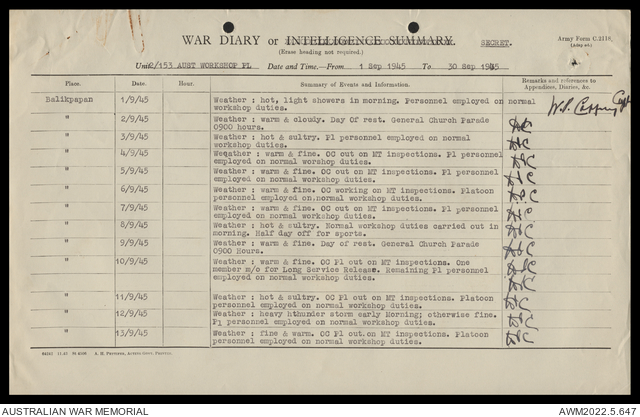 WAR DIARY or INTELLIGENCE SUMMARY.
(Erase heading not required.)
SECRET.
Army Form C.2118.
Unit 2/153 AUST WORKSHOP PL Date and Time.—From 1 Sep 1945 To 30 Sep 1945
Place. Date. Hour. Summary of Events and Information. Remarks and references to Appendices, Diaries, &c.
Balikpapan 1/9/45 Weather : hot, light showers in morning. Personnel employed on normal
workshop duties.
" 2/9/45 Weather : warm & cloudy. Day Of rest. General Church Parade
0900 hours.
" 3/9/45 Weather : hot & sultry. Pl personnel employed on normal
workshop duties.
" 4/9/45 Weqather : warm & fine. OC out on MT inspections. Pl personnel
employed on normal worshop duties.
" 5/9/45 Weather : warm & fine. OC out on MT inspections. Pl personnel
employed on normal workshop duties.
" 6/9/45 Weather : warm & fine. OC working on MT inspections. Platoon
personnel employed on,normal workshop duties.
" 7/9/45 Weather : warm & fine. OC out on MT inspections. Pl personnel
employed on normal workshop duties.
" 8/9/45 Weather : hot & sultry. Normal workshop duties carried out in
morning. Half day off for sports.
" 9/9/45 Weather : warm & fine. Day of rest. General Church Parade
0900 Hours.
" 10/9/45 Weather : warm & fine. OC Pl out on MT inspections. One
member m/o for Long Service Release. Remaining Pl personnel
employed on normal workshop duties.
" 11/9/45 Weather : hot & sultry. OC Pl out on MT inspections. Platoon
personnel employed on normal workshop duties.
" 12/9/45 Weather : heavy hthunder storm early Morning; otherwise fine.
Pl personnel employed on normal workshop duties.
" 13/9/45 Weather : fine & warm. OC Pl out.on MT inspections. Platoon
personnel employed on normal workshop duties.
AUSTRALIAN WAR MEMORIAL
AWM2022.5.647